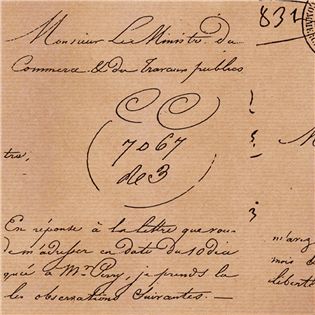 831
Monsieur Le Ministre du
Commerce & du Travaux publics
7067
de 3
tre,
En réponse à la lettre que vou-
de m'adresser en date du 10 dec
à Mr Pery, je prends la
les observations Suivantes. —
m'avez
mois de
liberté